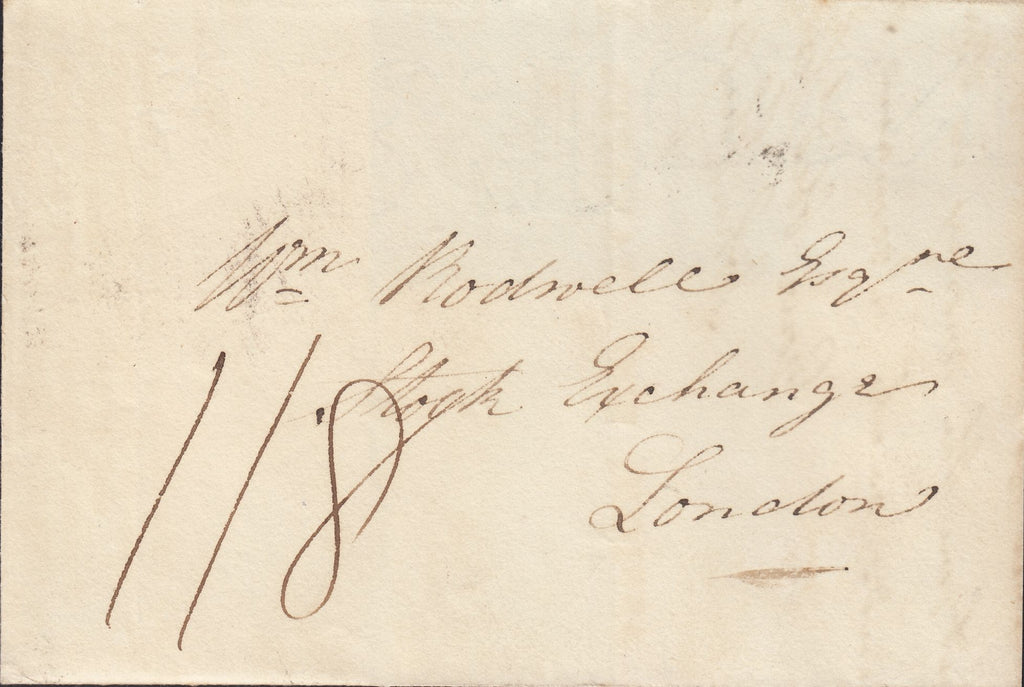 Wm Rodwell Esqre
Stock Exchange
London
1/8